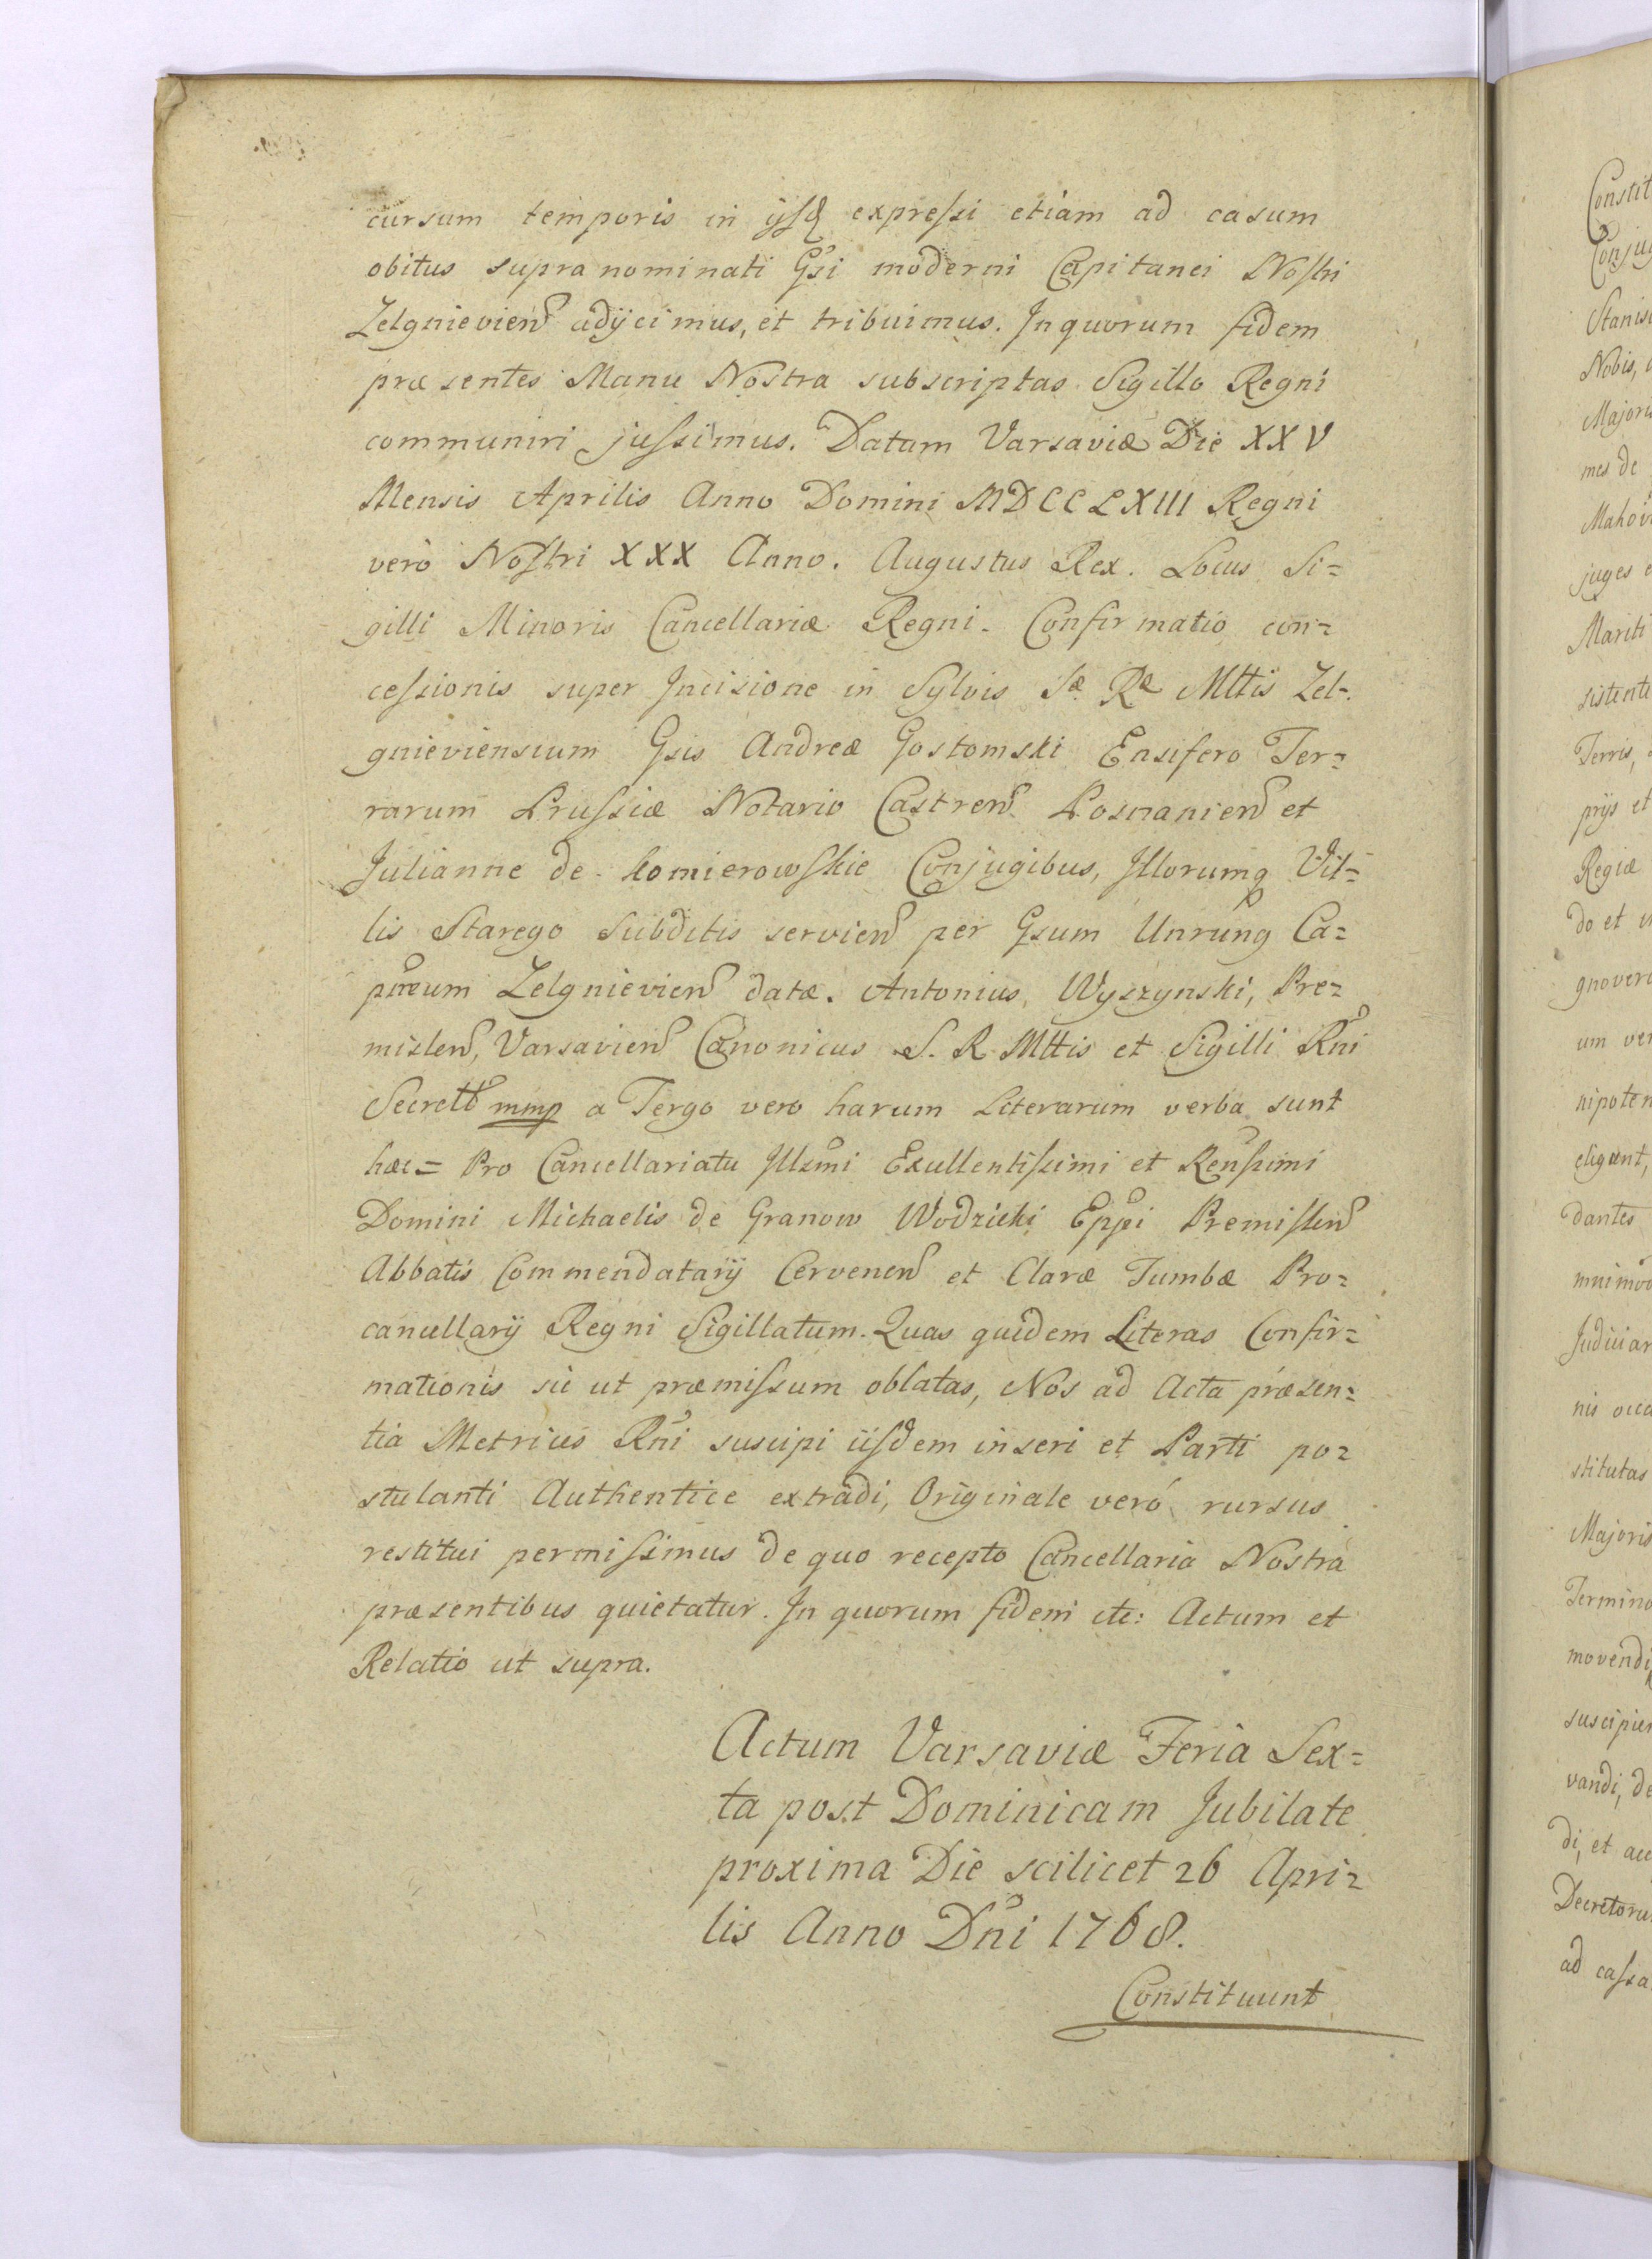 cursum temporis in ijsd expressi etiam ad casum
obitus supra nominati Gsi moderni Capitanei Nostri
Zelgnievien adijcimus, et tribuimus. In quorum fidem
præsentes Manu Nostra subscriptas Sigillo Regni
communiri jussimus. Datum Varsaviæ Die XXV
Mensis Aprilis Anno Domini MDCCLXIII Regni
verò Nostri XXX Anno. Augustus Rex. Locus Si=
gilli Minoris Cancellariæ Regni. Confirmatio con=
cessionis super Incisione in Sylvis Sæ Ræ Mttis Zel=
gnieviensium Gsis Andreæ Gostomski Ensifero Ter=
rarum Prussiæ Notario Castren Posnanien et
Julianne de Komierowskie Conjugibus, Illorumq Vil=
lis Starego Subditis servien per Gsum Unrung Ca=
pneum Zelgnievien datæ. Antonius Wyszynski, Pre=
mislen, Varsavien Canonicus S. R. Mttis et Sigilli Rni
Secrett mmp a Tergo vero harum Literarum verba sunt
hæc = Pro Cancellariatu Illsmi Excellentissimi et Renssimi
Domini Michaelis de Granow Wodzicki Eppi Premislen
Abbatis Commendatarij Cervenen et Claræ Tumbæ Pro=
cancellarij Regni Sigillatum. Quas quidem Literas Confir=
mationis sic ut præmissum oblatas, Nos ad Acta præsen=
tia Metrices Rni suscipi iisdem inseri et Parti po=
stulanti Authentice extradi, Originale veró rursus
restitui permissimus de quo recepto Cancellaria Nostra
præsentibus quietatur. In quorum fidem etc: Actum et
Relatio ut supra.
Actum Varsaviæ Feria Sex=
ta post Dominicam Jubilate
proxima Die scilicet 26 Apri=
lis Anno Dni 1768.
Constituunt
Constit
Conjug
Stanis
Nobis,
Majori
mes de
Mariti
sistente
Terris,
Regiæ
do et
um ver
nipoten
eligunt,
dantes
Judiciar
stitutas
Majoris
Termino
movendi
suscipien
vandi, de
di, et
Decretoru
ad cassa